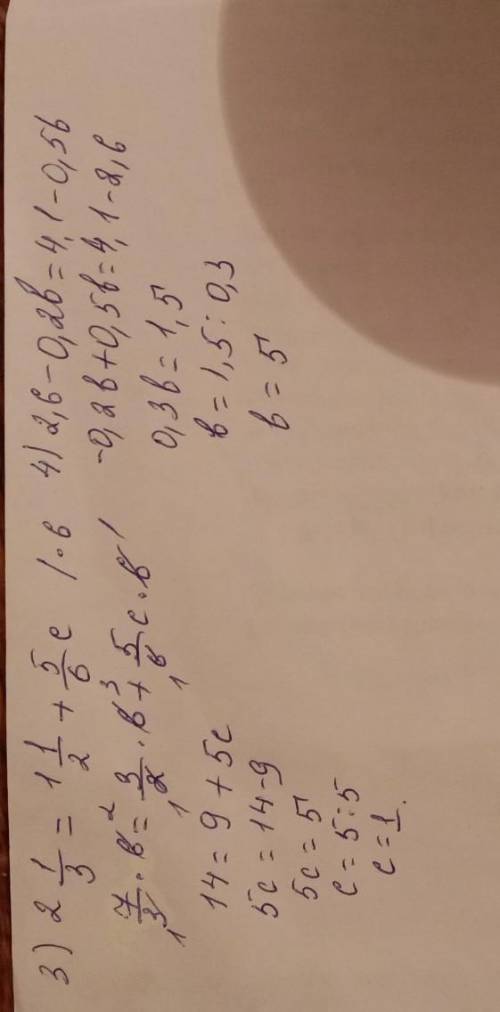 3) 2 1/3 = 1 1/2 + 5/6 c | · 6
7/3 · 6² = 3/2 · 6³ + 5/6 c · 6¹
1 1 1
14 = 9 + 5c
5c = 14 - 9
5c = 5
c = 5 : 5
c = 1.
4) 2,6 - 0,2b = 4,1 - 0,5b
-0,2b + 0,5b = 4,1 - 2,6
0,3b = 1,5
b = 1,5 : 0,3
b = 5